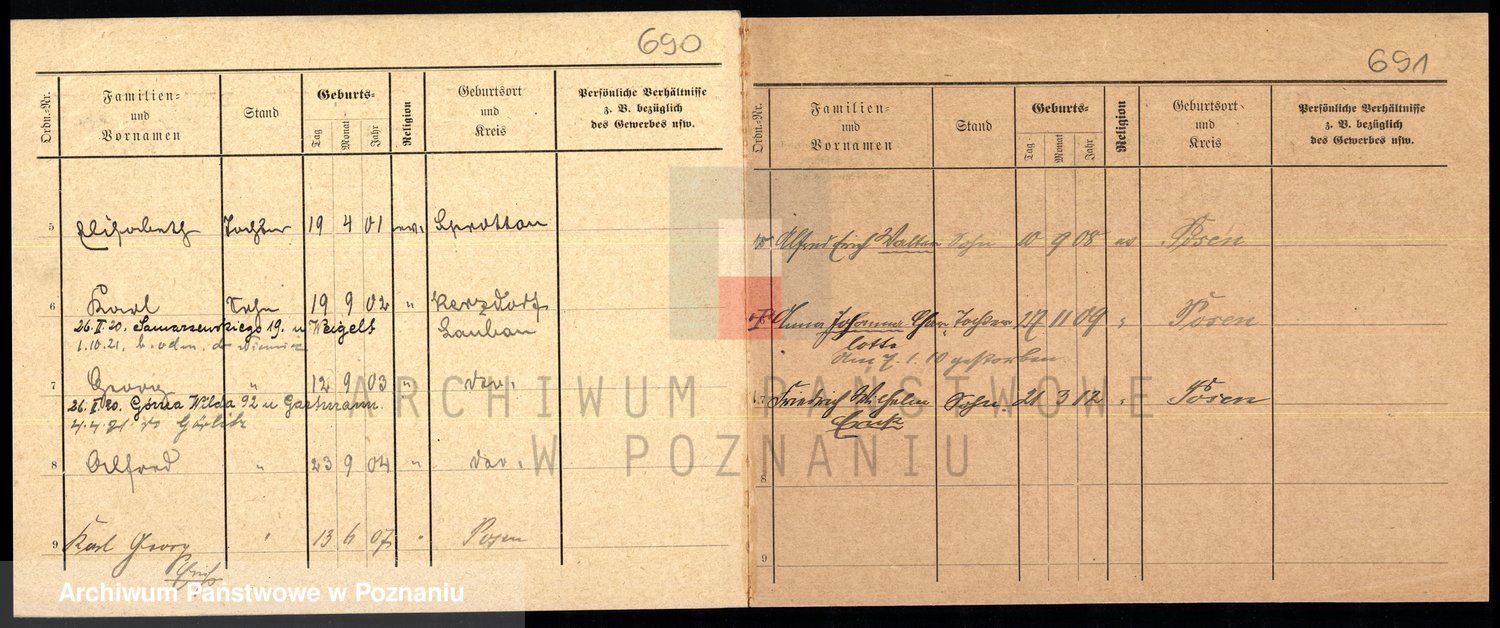 690
Ordn.-Nr.
Familien- und Vornamen
Stand
Geburts-
Tag
Monat
Jahr
Religion
Geburtsort und Kreis
Persönliche Verhältnisse z. B. bezüglich des Gewerbes usw.
5 Elisabeth Tochter 19 4 01 ev. Sprottau
6 Karl Sohn 19 9 02 " Kerzdorf
Lauban
26.II.20. Samarzewskiego 19. u Weigelt
1.10.21.
7 Georg " 12 9 03 " do.
26.II.20. Górna Wilda 92 u Gartmann
4.4.21 do Görlitz
8 Alfred " 23 9 04 " do.
9 Karl Georg " 13 6 07 " Posen
Erich
Archiwum Państwowe w Poznaniu
691
Ordn.-Nr.
Familien- und Vornamen
Stand
Geburts-
Tag
Monat
Jahr
Religion
Geburtsort und Kreis
Persönliche Verhältnisse z. B. bezüglich des Gewerbes usw.
Alfred Erich Walter Sohn 10 9 08 ev Posen
Anna Johanna Char- Tochter 27 11 09 " Posen
lotte
Am 7. 1. 10 gestorben.
Friedrich Wilhelm Sohn 21 3 12 " Posen
8
9
ARCHIWUM PAŃSTWOWE
W POZNANIU